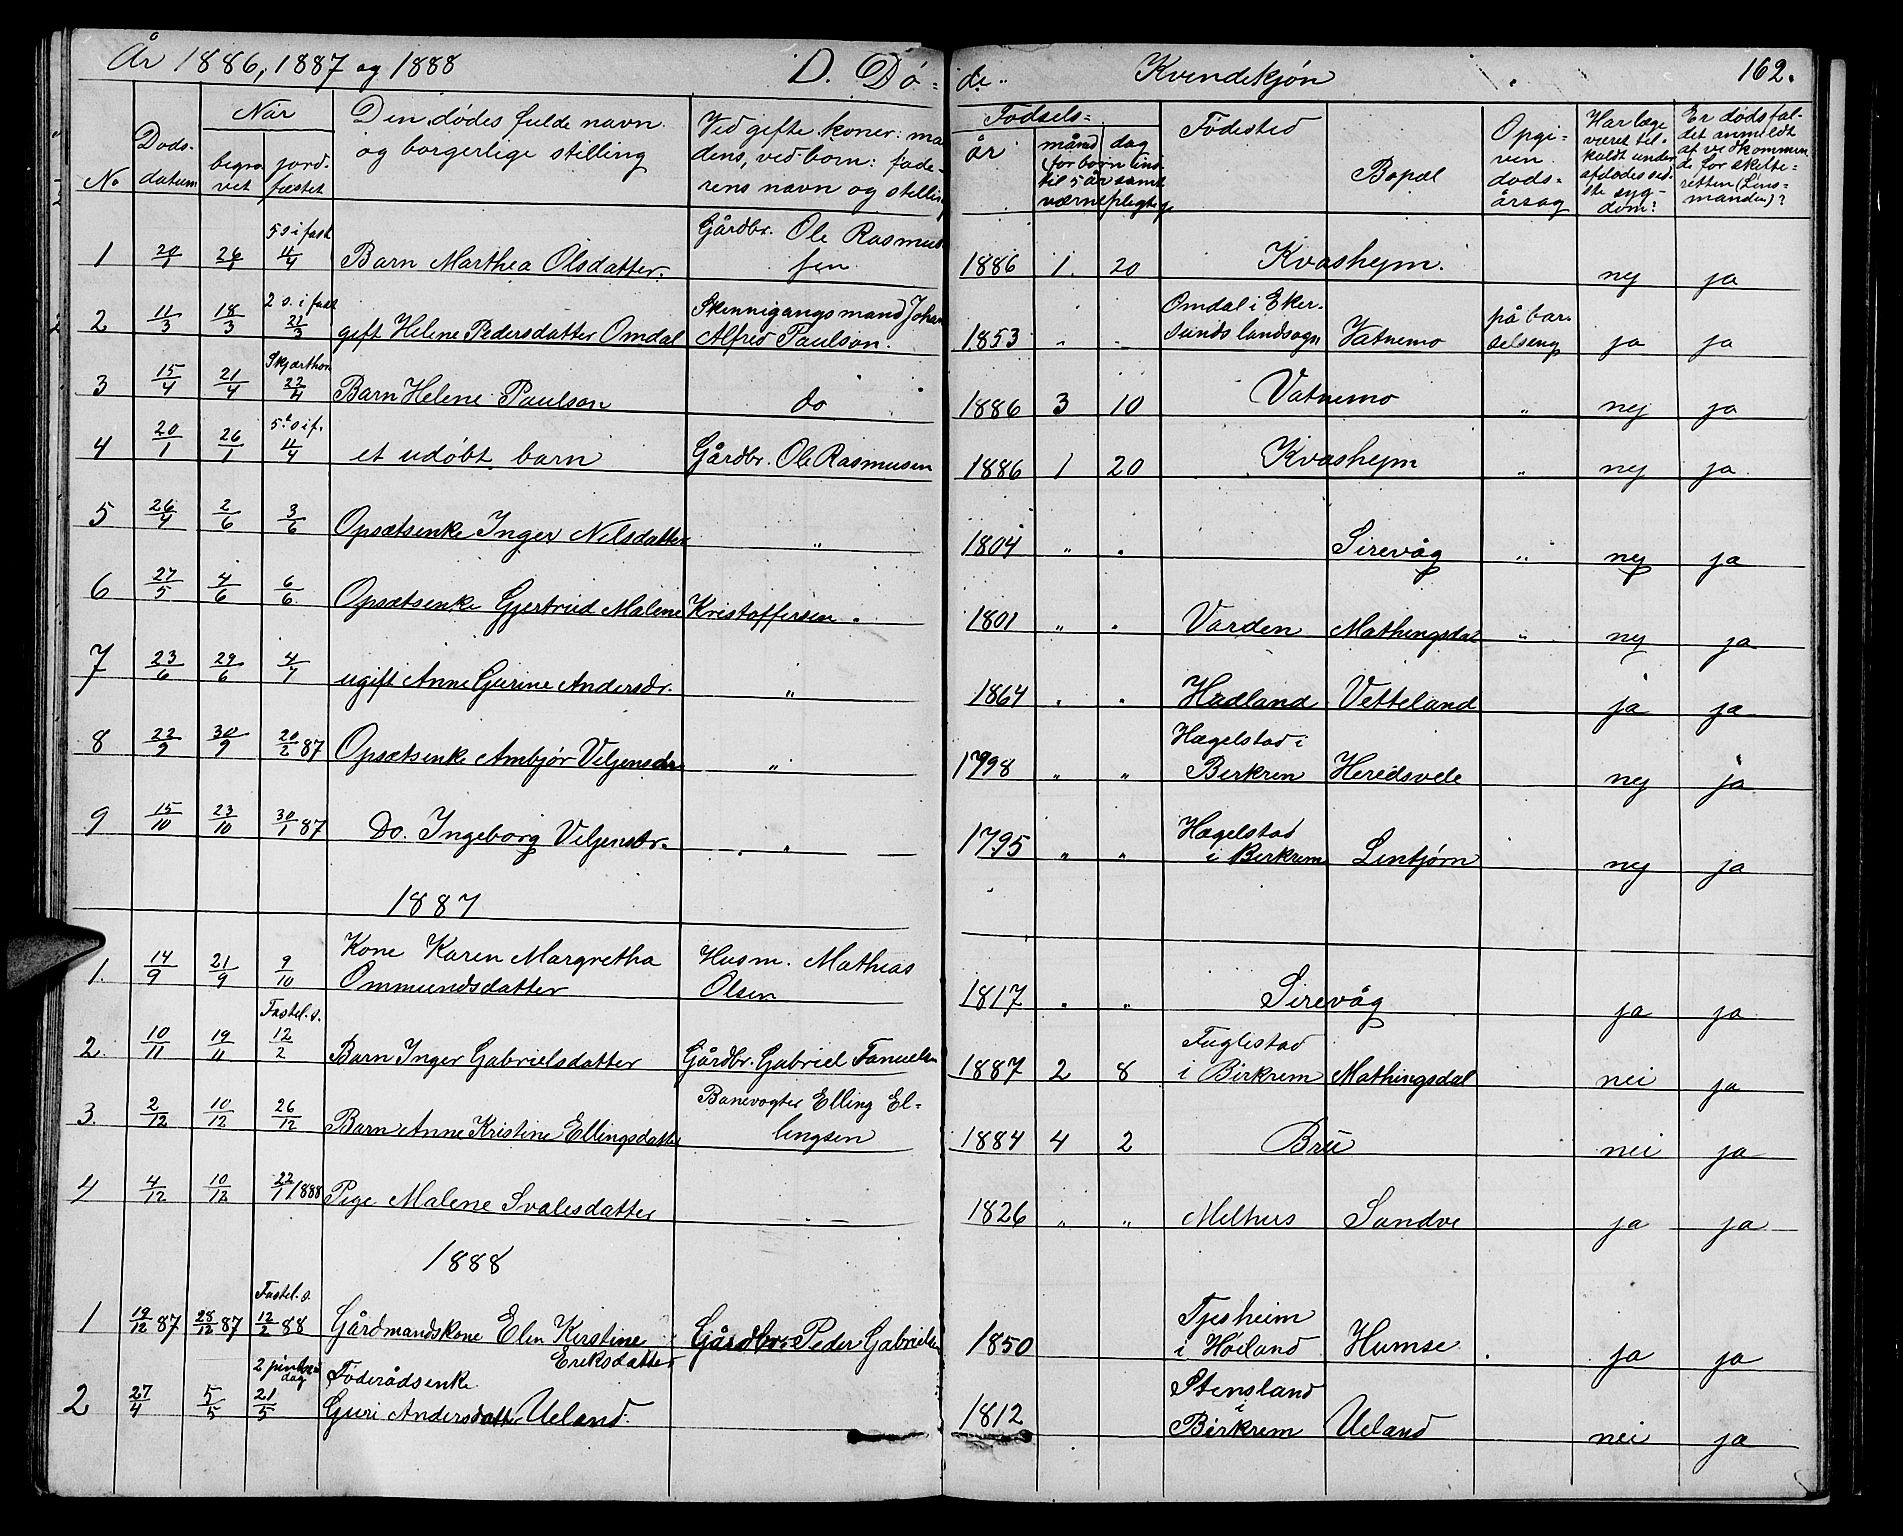 År 1886, 1887 og 1888 D. Dø- de.. Kvindekjøn 162.
No Døds-datum Når begravet jordfæstet Den dødes fulde navn og borgerlige stilling Ved gifte koner: mandens, ved børn: faderens navn og stilling Fødsels- år måned dag (for børn indtil 5 år samt værnepligtige Fødested Bopæl Opgiven dødsårsag Har læge været tilkaldt under afdødes sidste sygdom? Er dødsfaldet anmeldt af vedkommende for skifteretten (Lensmanden)?
5 s i fast Gårdbr. Ole Rasmus-
1 20/1 26/1 11/4 Barn Marthea Olsdatter. sen 1886 1. 20 Kvashejm. nej ja
2 s. i fast Skinnegangsmand Johan Omdal i Eker- på bar-
2 11/3 18/3 21/3 gift Helene Pedersdatter Omdal Alfred Paulson. 1853 " - sunds landsogn Vatnemo selseng ja ja
Skjærthor
3 15/4 21/4 22/4 Barn Helene Paulson do 1886 3 10 Vatnemo " nej ja
5te s i f.
4 20/1 26/1 11/4 et udøbt barn Gårdbr. Ole Rasmusen 1886 1 20 Kvashejm " nej ja
5 26/4 2/6 3/6 Opsætsenke Inger Nilsdatter " 1804 " " Sirevåg " nej ja
6 27/5 4/6 6/6 Opsætsenke Gjertrud Malene Kristoffersen. 1801 " " Varden Mathingsdal " nej ja
7 23/6 29/6 4/7 ugift Anne Gurine Andersdr. " 1864 " " Hadland Vetteland ja ja
Hægelstad i
8 22/9 30/9 20/2 87 Opsætsenke Ambjør Veljensdr " 1798 " " Birkrem Heredsvele nej ja
Hægelstad
9 15/10 23/10 30/1 87 Do. Ingeborg Veljensdr. " 1795 " " i Birkrem Lintjørn nej ja
1887
Kone Karen Margretha Husm. Mathias
1. 14/9 21/9 9/10 Ommundsdatter Olsen 1817 " " Sirevåg ja ja
Fastel. s. Fuglestad
2 10/11 19/11 12/2 Barn Inger Gabrielsdatter Gårdbr. Gabriel Tanuelsen 1887 2 8 i Birkrem Mathingsdal nei ja
Banevogter Elling El-
3. 2/12 10/12 26/12 Barn Anne Kristine Ellingsdatter lingsen 1884 4 2 Bru nei ja
4 4/12 10/12 22/1 1888 Pige Malene Svalesdatter - " - 1826 " " Melhus Sandve ja ja
1888
Fastel. s. Tjesheim
1 19/12 87 28/12 87 12/2 88 Gårdmandskone Elen Kirstine Gårdbr. Peder Gabrielsen 1850 i Høiland Humse . ja ja
Eriksdatter
2 pintsedag Føderådsenke Stensland i
2 27/4 5/5 21/5 Guri Andersdatt Ueland. 1812 Birkrem Ueland nei ja